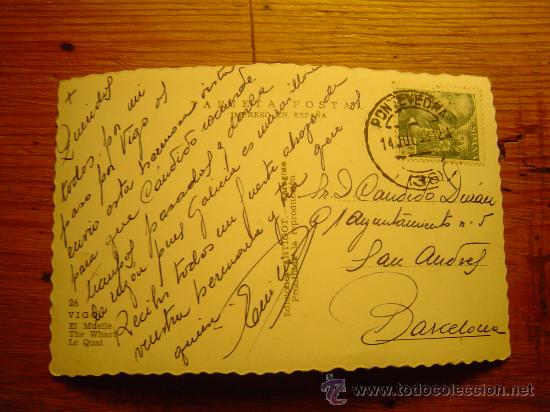 +
Queridos
todos por mi
paso por Vigo os
envio esta hermosa vista
para que Candido recuerde
tiempos pasados y
la razon pues Galicia es
Recibir todos un fuerte abrazo de
vuestra hermana y tia que os
quiere
TARJETA POSTAL
IMPRESO EN ESPAÑA
26
VIGO
El Muelle
The Wharf
Le Quai
Prohibida la reproducción
PONTEVEDRA
14 JUL
(38)
Sr. D. Candido Durán
Ayuntamiento n. 5
San Andres
Barcelona
© www.todocoleccion.net